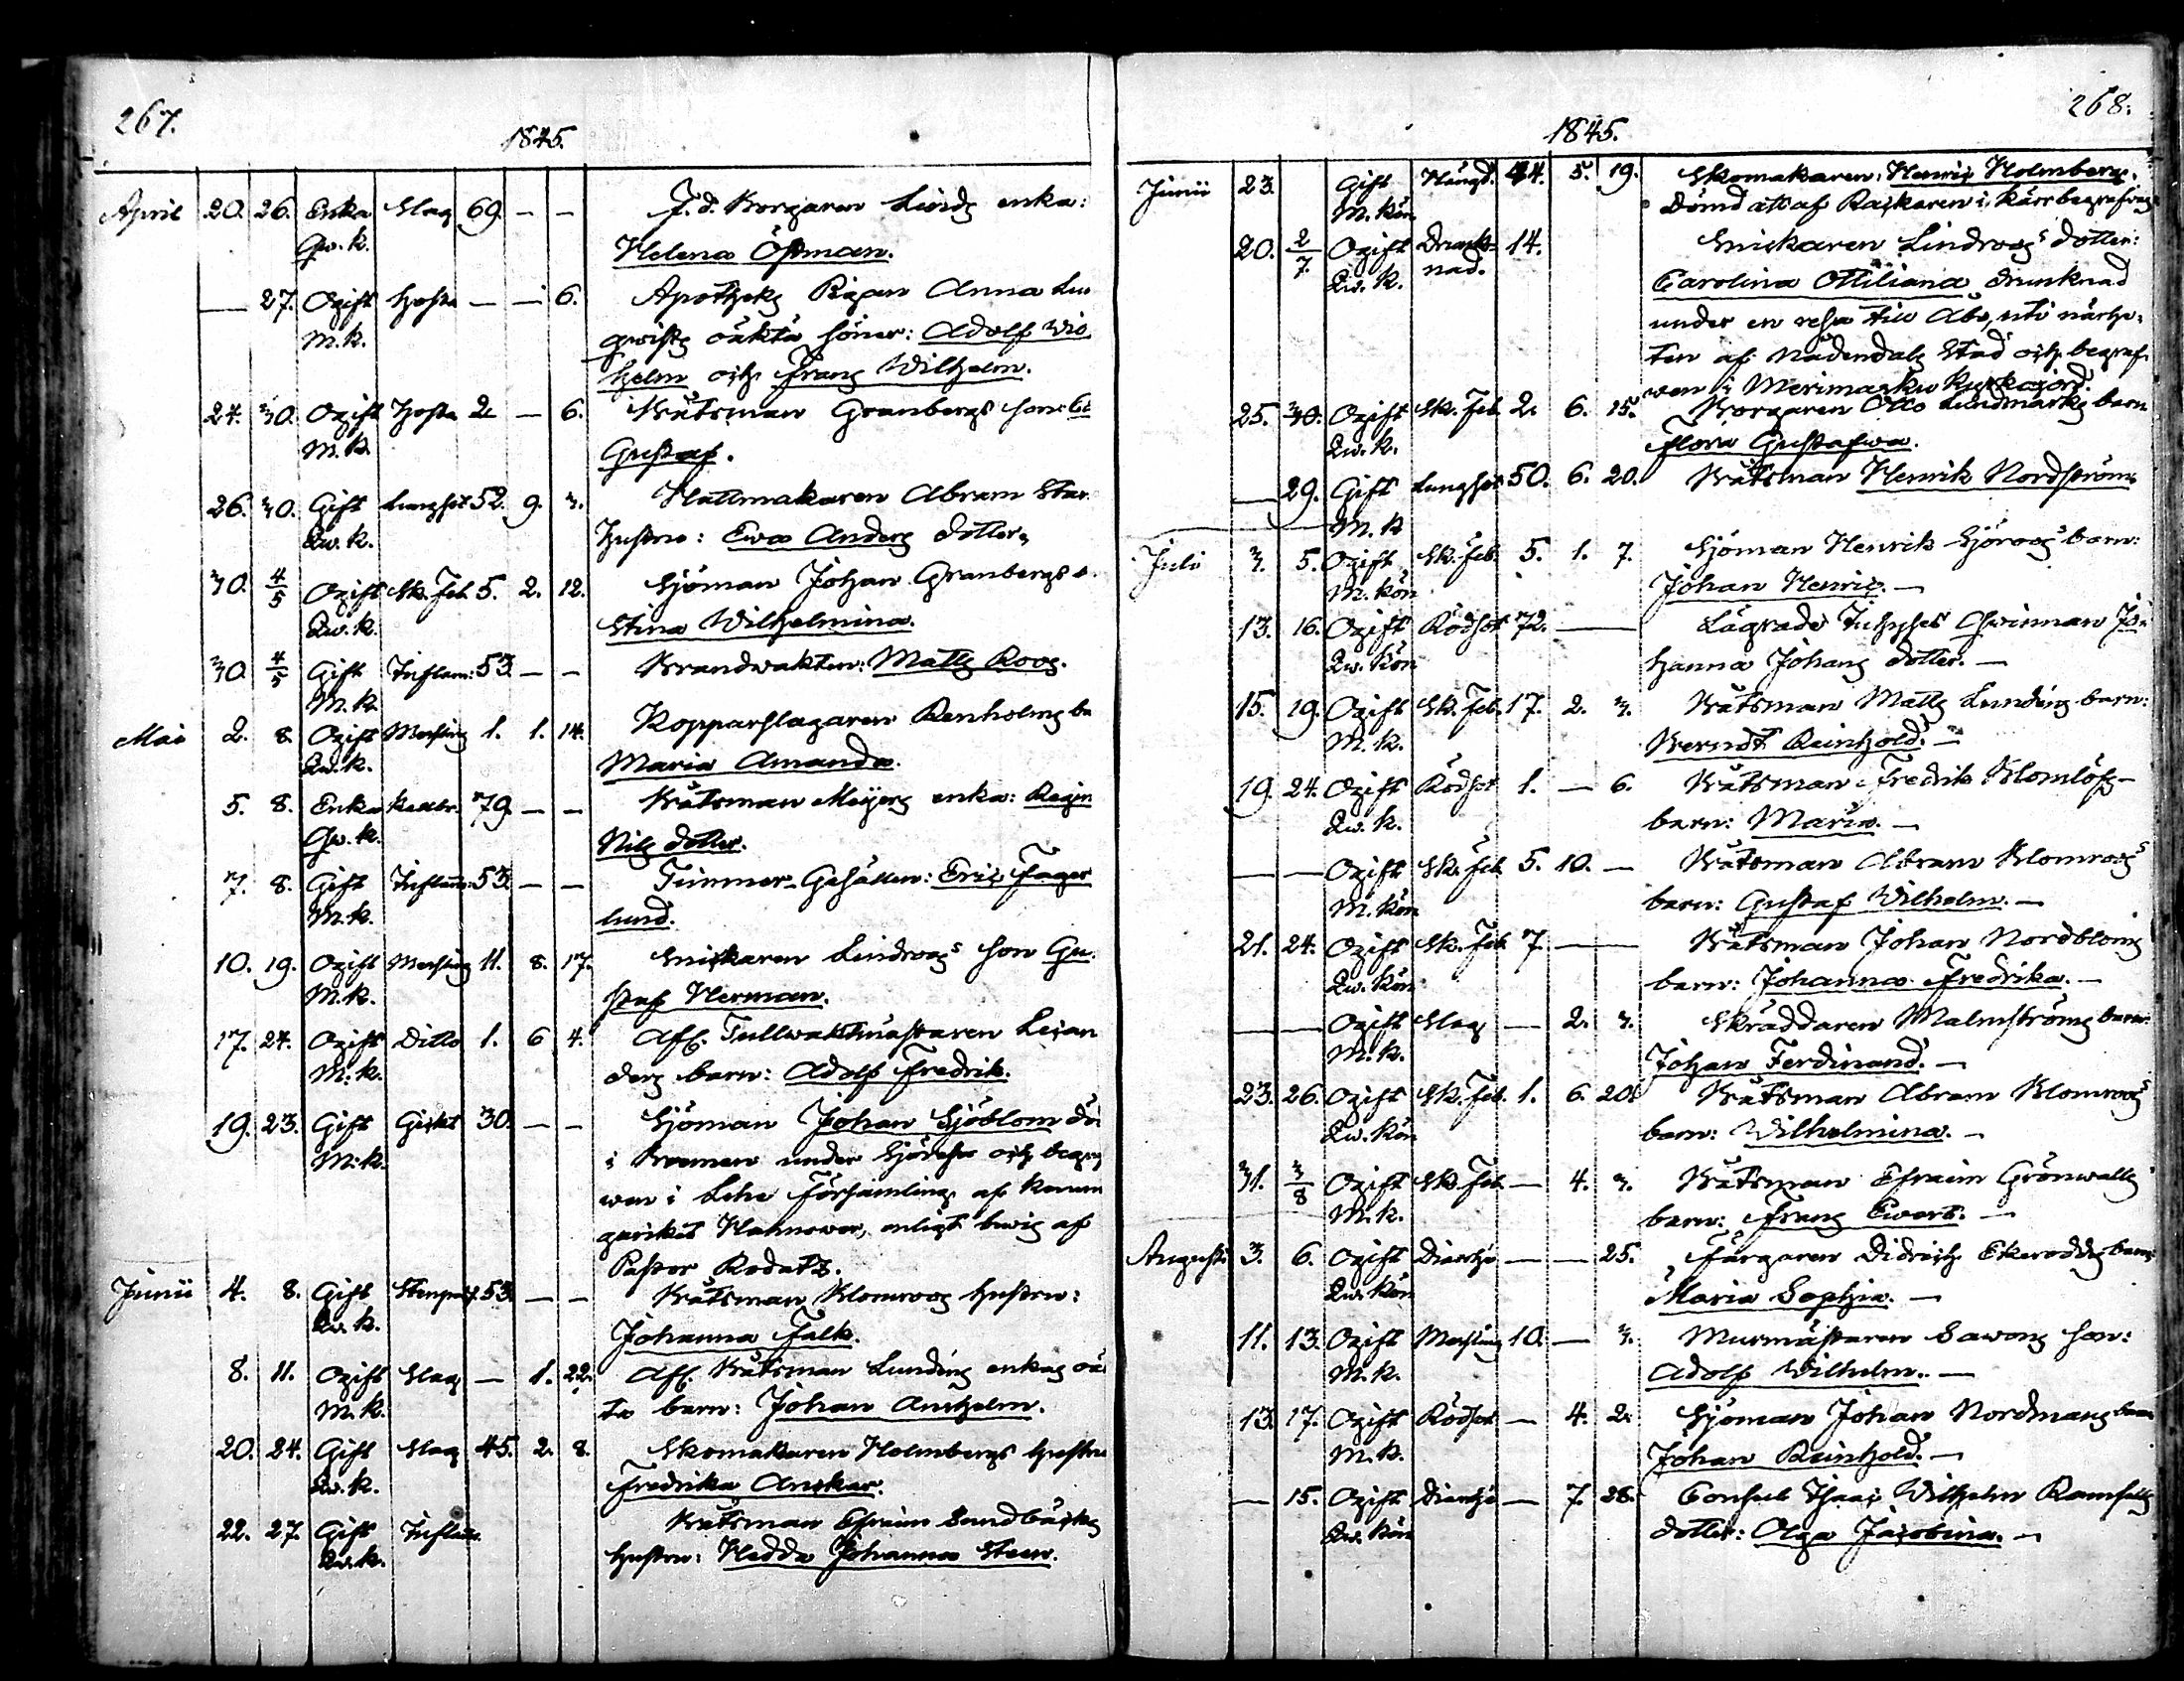 267.
1845.
April 20. 26. Enka Slag 69. — — F. d. Borgaren Lurds enka:
Qw. k. Helena Östman.
— 27. Ogift Hosta — — 6. Apotheks Pigan Anna Lun
M. k. qwists oäkta söner: Adolf Wil
helm och Frans Wilhelm.
24. 30. Ogift Hosta 2. — 6. Båtsman Granbergs son:
M. k. Gustaf.
26. 30. Gift Lungsot 52. 9. 3. Hattmakaren Abram
Qw. k. Hustru: Ewa Anders dotter.
30. 4/5 Ogift Sk. Feb. 5. 2. 12. Sjöman Johan Granbergs
Qw. k. Stina Wilhelmina.
30. 4/5 Gift Inflam: 53. — — Brandwakten: Matts Roos.
M. k.
Mai 2. 8. Ogift Messling 1. 1. 14. Kopparslagaren Renholms ba
Qw. k. Maria Amanda.
5. 8. Enka 79. — — Båtsman Meijers enka: Regin
Qw. k. Nils dotter.
7. 8. Gift Inflam: 53. — — Timmer-Gesällen: Eric Fager
M. k. lund.
10. 19. Ogift Messling 11. 8. 17. Snickaren Lindroos son Gu
M. k. staf Herman.
17. 24. Ogift Ditto 1. 6 4. Afl. Tullwaktmästaren Leian
M. k. ders barn: Adolf Fredrik.
19. 23. Gift Gickt 30. — — Sjöman Johan Sjöblom dö
M. k. i Bremen under Sjöresa och begra
wen i Lehe Församling af Konun
gariket Hannower, enligt bewis af
Pastor Rodatz.
Junii 4. 8. Gift 53. — — Båtsman Blomroos hustru:
Qw. k. Johanna Falk.
8. 11. Ogift Slag — 1. 22. Afl. Båtsman Lundins enkas oä
M. k. ta barn: Johan Anshelm.
20. 24. Gift Slag 45. 2. 8. Skomakaren Holmbergs hustru
Qw. k. Fredrika Anckar.
22. 27. Gift Inflam. Båtsman Efraim Sundbäcks
Qw. k. hustru: Hedda Johanna Steen.
268.
1845.
Junii 23. Gift Hängd. 44. 5. 19. Skomakaren: Henric Holmberg.
M. kön Dömd att af Rackaren i Kärr begrafvas
20. 2/7. Ogift Drunk- 14. Snickaren Lindroos dotter:
Qw. k. nad. Carolina Ottiliana drunknad
under en resa till Åbo, uti närhe-
ten af Nådendals Stad och begraf-
wen i Merimasku Kyrkojord.
25. 30. Ogift Sk. Feb. 2. 6. 15. Borgaren Otto Lundmarks barn
Qw. k. Floria Gustafwa.
— 29. Gift Lungsot 50. 6. 20. Båtsman Henrik Nordström
M. k
Juli 3. 5. Ogift Sk. Feb. 5. 1. 7. Sjöman Henrik Sjöroos barn:
M. kön Johan Henric. —
13. 16. Ogift Rödsot 72. — Lagrade Inhyses Qwinnan Jo-
Qw. kön hanna Johans dotter. —
15. 19. Ogift Sk. Feb. 17. 2. 3. Båtsman Matts Lundins barn:
M. k. Berndt Reinhold. —
19. 24. Ogift Rödsot 1. — 6. Båtsman Fredrik Blomlöfs
Qw. k. barn: Maria. —
— — Ogift Sk. Feb. 5. 10. — Båtsman Abram Blomroos
M. kön barn: Gustaf Wilhelm. —
21. 24. Ogift Sk. Feb. 7. — Båtsman Johan Nordbloms
Qw. kön barn: Johanna Fredrika. —
— — Ogift Slag — 2. 3. Skräddaren Malmströms barn:
M. k. Johan Ferdinand. —
23. 26. Ogift Sk. Feb. 1. 6. 20. Båtsman Abram Blomroos
Qw. kön barn: Wilhelmina. —
31. 3/8 Ogift Sk. Feb. — 4. 3. Båtsman Efraim Grönwalls
M. k. barn: Frans Ewert. —
Augusti 3. 6. Ogift Diarrhé — — 25. Färgaren Didrich Ekerodds barn
Qw. kön Maria Sophia. —
11. 13. Ogift Messling 10. — 3. Murmästaren Sawons son:
M. k. Adolf Wilhelm. —
13. 17. Ogift Rödsot — 4. 2. Sjöman Johan Nordmans barn
M. k. Johan Reinhold. —
— 15. Ogift Diarrhé — 7. 28. Consul Isaac Wilhelm Ramsells
Qw. kön dotter: Olga Jacobina. —